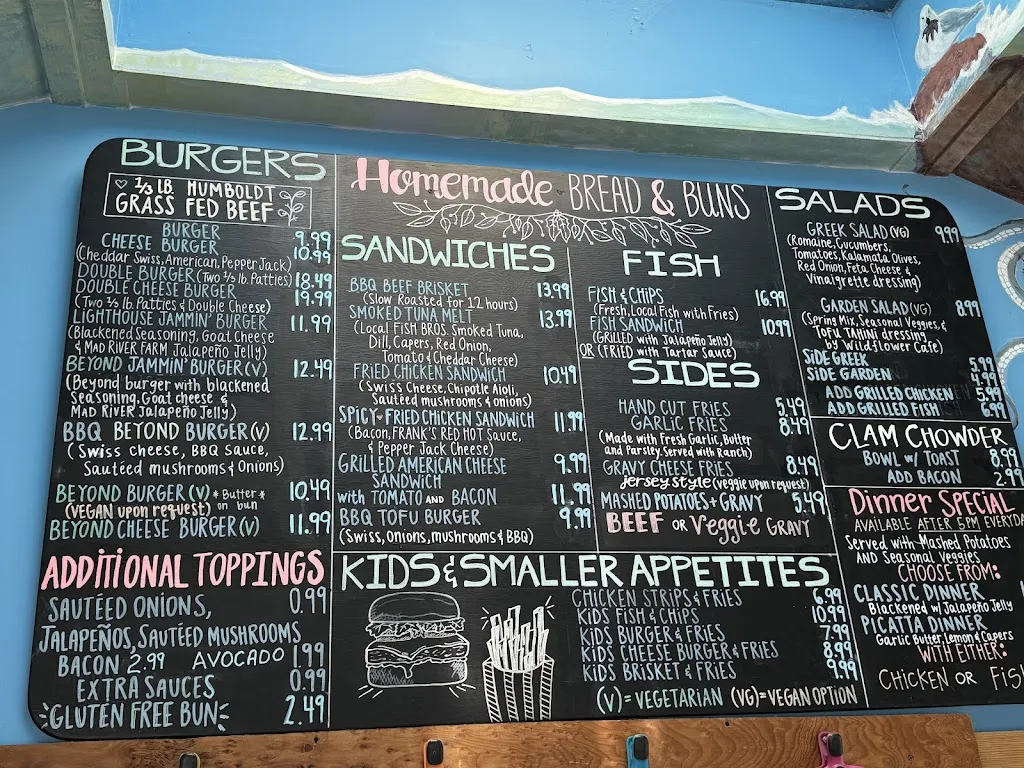 BURGERS
♡ 1/3 LB. HUMBOLDT
GRASS FED BEEF
BURGER 9.99
CHEESE BURGER 10.99
(Cheddar, Swiss, American, Pepper Jack)
DOUBLE BURGER (Two 1/3 lb. Patties) 18.49
DOUBLE CHEESE BURGER 19.99
(Two 1/3 lb. Patties & Double Cheese)
LIGHTHOUSE JAMMIN' BURGER 11.99
(Blackened Seasoning, Goat Cheese
& MAD RIVER FARM Jalapeño Jelly)
BEYOND JAMMIN' BURGER (V) 12.49
(Beyond burger with blackened
Seasoning, Goat cheese &
MAD RIVER Jalapeño Jelly)
BBQ BEYOND BURGER (V) 12.99
(Swiss cheese, BBQ sauce,
Sautéed mushrooms & Onions)
BEYOND BURGER (V) *Butter* on bun 10.49
(VEGAN upon request)
BEYOND CHEESE BURGER (V) 11.99
ADDITIONAL TOPPINGS
SAUTÉED ONIONS, 0.99
JALAPEÑOS, SAUTÉED MUSHROOMS
BACON 2.99 AVOCADO 1.99
EXTRA SAUCES 0.99
GLUTEN FREE BUN 2.49
Homemade BREAD & BUNS
SANDWICHES
BBQ BEEF BRISKET 13.99
(Slow Roasted for 12 hours)
SMOKED TUNA MELT 13.99
(Local FISH BROS. Smoked Tuna,
Dill, Capers, Red Onion,
Tomato & Cheddar Cheese)
FRIED CHICKEN SANDWICH 10.49
(Swiss Cheese, Chipotle Aioli,
Sautéed mushrooms & onions)
SPICY FRIED CHICKEN SANDWICH 11.99
(Bacon, FRANK'S RED HOT Sauce,
& Pepper Jack Cheese)
GRILLED AMERICAN CHEESE 9.99
SANDWICH
with TOMATO AND BACON 11.99
BBQ TOFU BURGER 9.99
(Swiss, onions, mushrooms & BBQ)
FISH
FISH & CHIPS 16.99
(Fresh, Local Fish with Fries)
FISH SANDWICH 10.99
(GRILLED with Jalapeño Jelly)
OR (FRIED with Tartar Sauce)
SIDES
HAND CUT FRIES 5.49
GARLIC FRIES 8.49
(Made with Fresh Garlic, Butter
and Parsley, Served with Ranch)
GRAVY CHEESE FRIES 8.49
jersey style (veggie upon request)
MASHED POTATOES + GRAVY 5.49
BEEF OR Veggie GRAVY
KIDS & SMALLER APPETITES
CHICKEN STRIPS & FRIES 6.99
KIDS FISH & CHIPS 10.99
KIDS BURGER & FRIES 7.99
KIDS CHEESE BURGER & FRIES 8.99
KIDS BRISKET & FRIES 9.99
(V) = VEGETARIAN (VG) = VEGAN OPTION
SALADS
GREEK SALAD (VG) 9.99
(Romaine, Cucumbers,
Tomatoes, Kalamata Olives,
Red Onion, Feta Cheese &
Vinaigrette dressing)
GARDEN SALAD (VG) 8.99
(Spring Mix, Seasonal Veggies, &
TOFU TAHINI dressing
by Wildflower Cafe)
SIDE GREEK 5.99
SIDE GARDEN 4.99
ADD GRILLED CHICKEN 5.99
ADD GRILLED FISH 6.99
CLAM CHOWDER
BOWL w/ TOAST 8.99
ADD BACON 2.99
Dinner SPECIAL
AVAILABLE AFTER 5PM EVERYDAY
Served with Mashed Potatoes
AND Seasonal Veggies
CHOOSE FROM:
CLASSIC DINNER
Blackened w/ Jalapeño Jelly
PICATTA DINNER
Garlic Butter, Lemon & Capers
WITH EITHER:
CHICKEN OR FISH